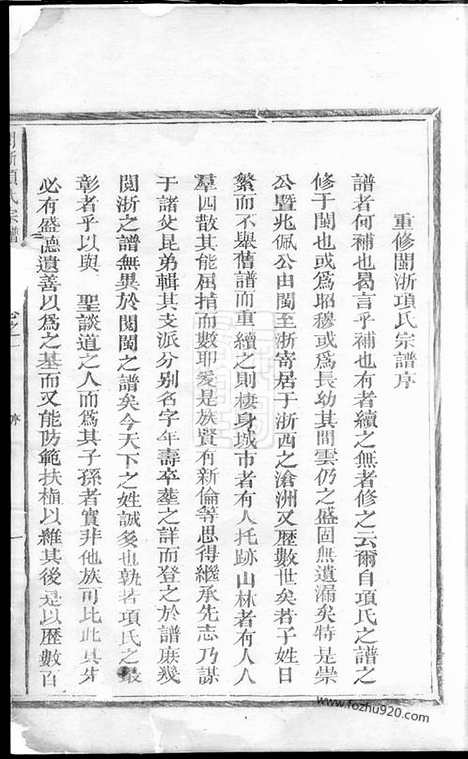 重修閩浙項氏宗譜序
譜者何補也曷言乎補也有者續之無者修之云爾自項氏之譜之
修于閩也或為昭穆或為長幼其間雲仍之盛固無遺漏矣特是崇
公暨兆佩公由閩至浙寄居于浙西之滄洲又歷數世矣若子姓日
繁而不舉舊譜而重續之則棲身城市者有人托跡山林者有人人
羣四散其能屈指而數耶爰是族賢有新倫等思得繼承先志乃謀
于諸父昆弟輯其支派分别名字年壽卒塟之詳而登之於譜庶幾
閩浙之譜無異於閩閩之譜矣今天下之姓誠多也孰若項氏之最
彰者乎以與 聖談道之人而為其子孫者實非他族可比此其先
必有盛德遺善以為之基而又能防範扶植以維其後是以歷數百
浙項氏宗譜
序
一
www.fozhu920.com